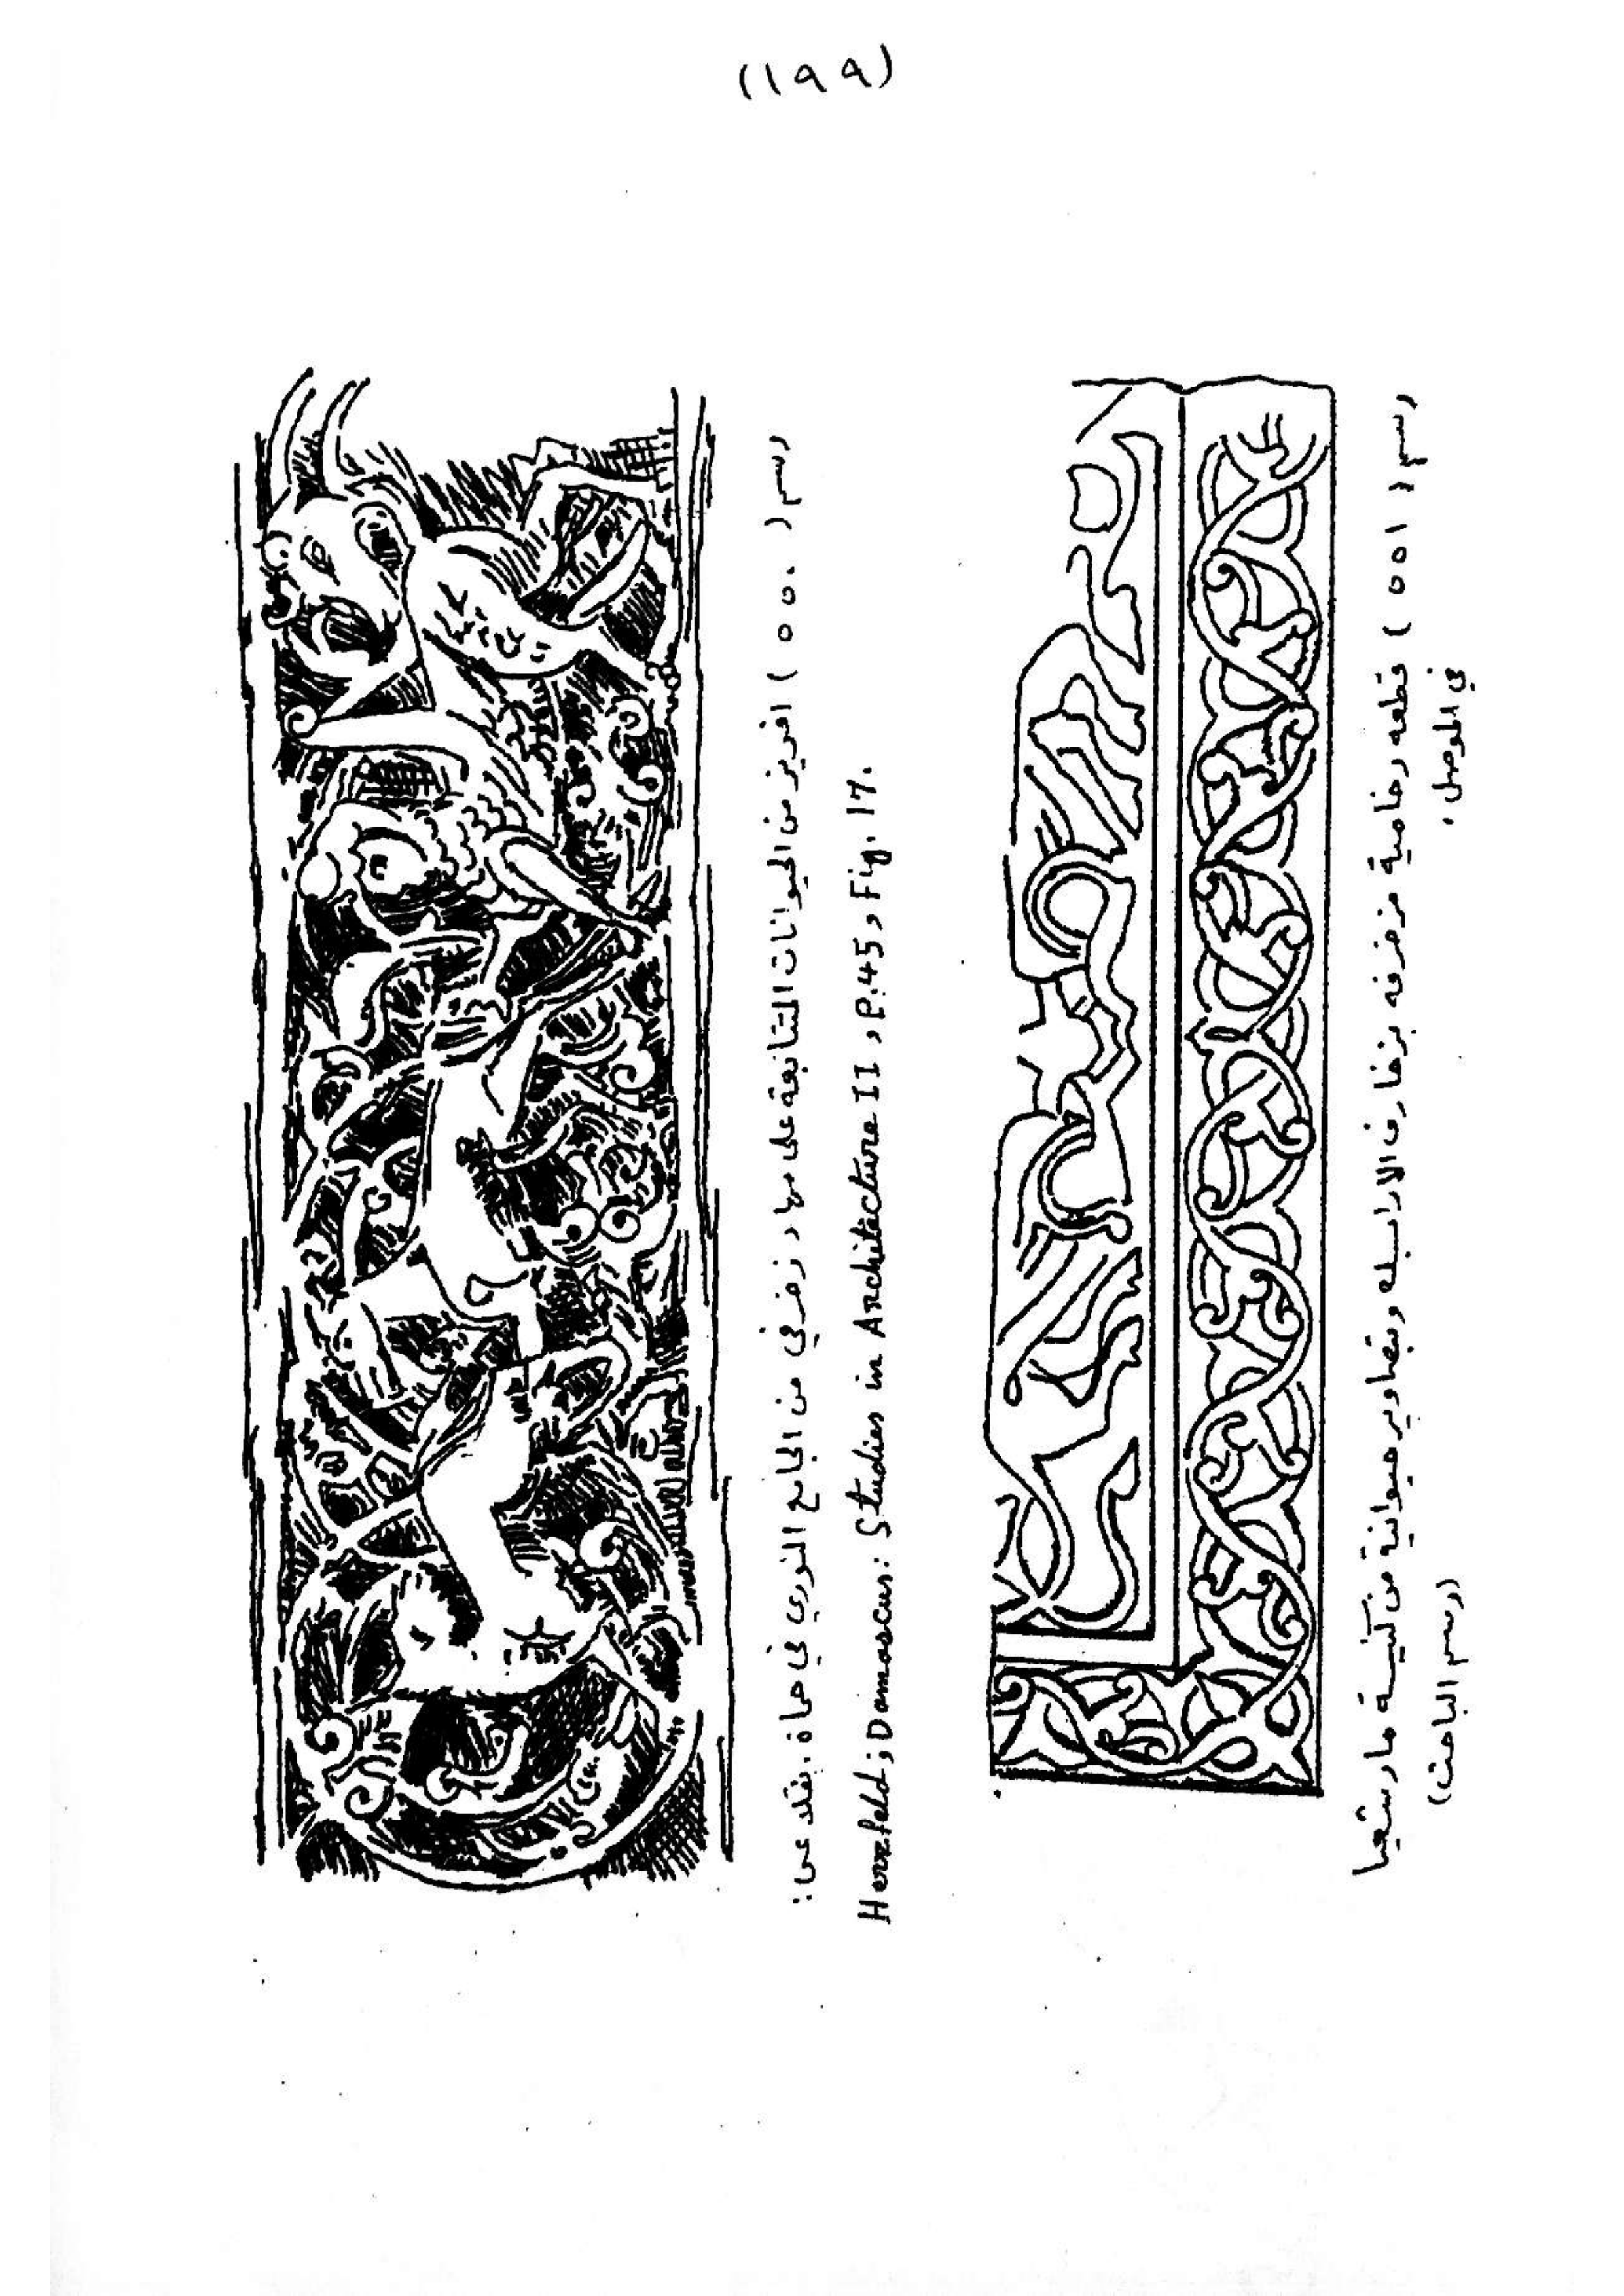 (١٩٩)
رسم ( ٥٥٠ ) افريز من الحيوانات المتتابعة على مهاد زخرفي من الجامع النوري في حماة، نقلا عن:
Herzfeld; Damascus: Studies in Architecture II, P.45, Fig. 17.
رسم ( ٥٥١ ) قطعه رخامية مزخرفه بزخارف الارابسك وبتصاوير حيوانية من كنيسة مار شعيا
في الموصل،
(رسم الباحث)